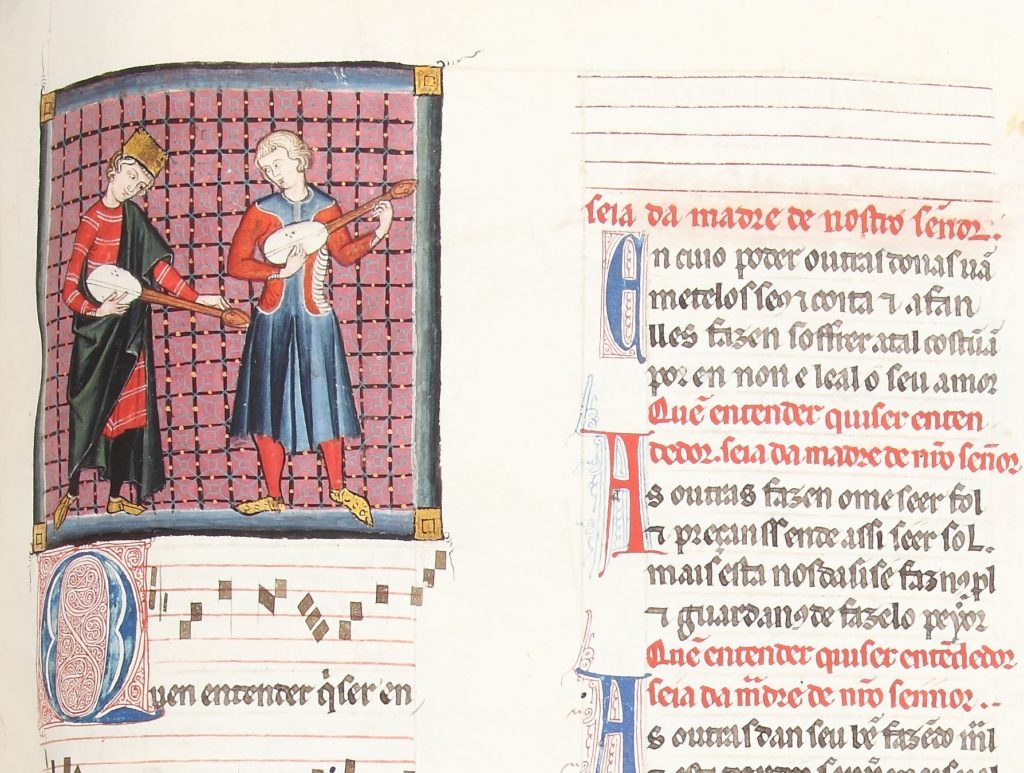 Quen entender q̃ser en
seia da madre de nostro señor:
En cuio poder outras donas uã
metelos seo ⁊ conta ⁊ afan
lles fazen soffrer. atal costuã
por en non e leal o seu amor
Quẽ entender quiser enten
dedor. seia da madre de nr̃o señor
As outras fazen ome seer fol
⁊ preçanss ende assi seer sol.
mais esta nos da sise faz nos
⁊ guardan de fazelo peyor
Quẽ entender quiser entẽdedor
seia da mãdre de nr̃o sennor..
As outras dan seu bẽ fazẽdo